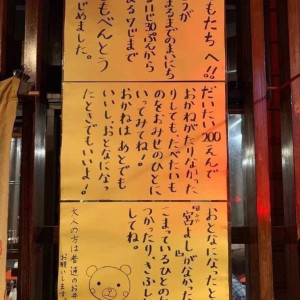 もたち へ!!
うが
まるまでのまいにち
11じ30ぷんから
るソじまで
もべんとう
じめました。
だいたい、200えんで
おかねがたりなかった
りしても、たべたいも
のをおみせのひとに、
いってみてね!
おかねはあとでも
いいし、おとなになっ
たときでもいいよ!
おとなになったと
宮よしがなかった
こまっているひとの
つかったり、きふし
してね。
大人の方は普通のお弁
お願いします。